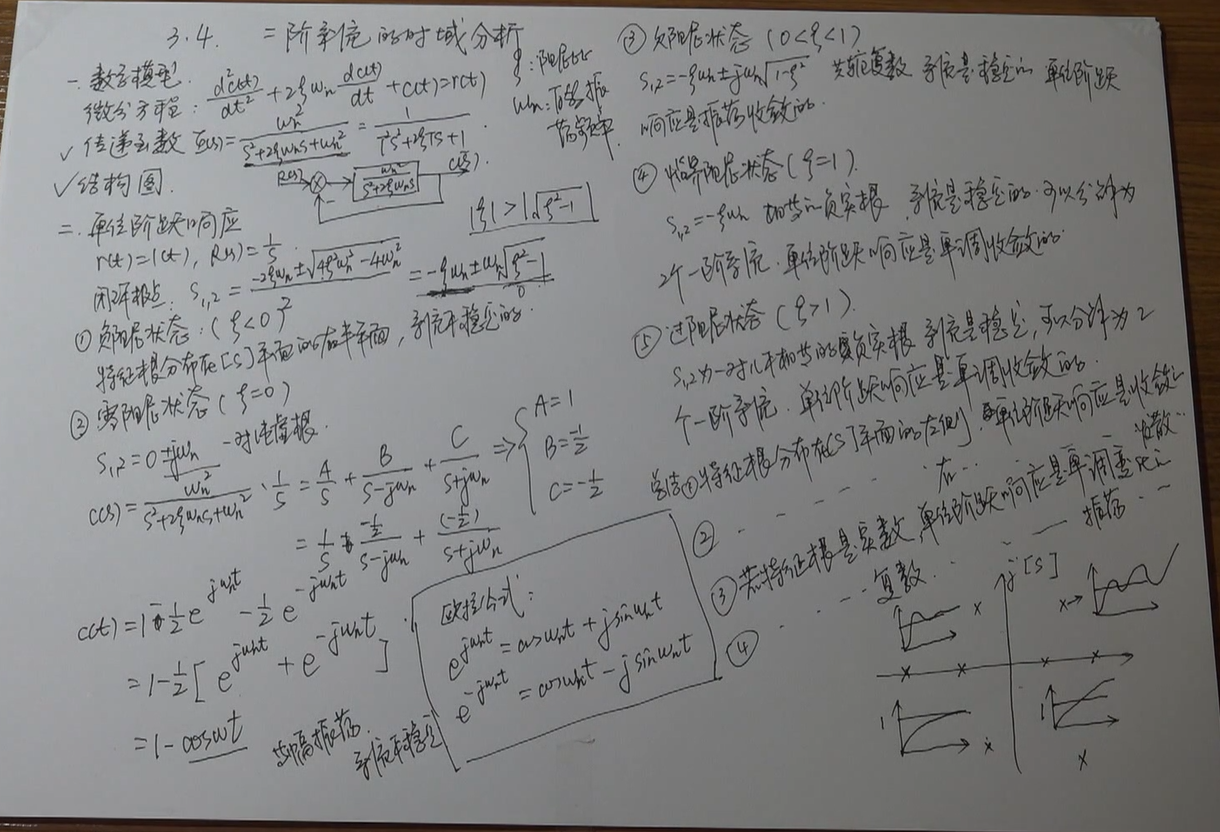 3.4. 二阶系统的时域分析
一. 数学模型.
微分方程: d²c(t)/dt² + 2ξωn dc(t)/dt + c(t)=r(t)
ξ:阻尼比
ωn:自然振荡频率
√ 传递函数 Φ(s)= ωn²/(s²+2ξωns+ωn²) = 1/(T²s²+2ξTs+1)
√ 结构图. R(s) ωn²/(s²+2ξωns) C(s).
二. 单位阶跃响应
|ξ|>|√(ξ²-1)|
r(t)=1(t), R(s)=1/s.
闭环极点. S1,2 = (-2ξωn±√(4ξ²ωn²-4ωn²))/2 = -ξωn±ωn√(ξ²-1)
① 负阻尼状态: (ξ<0)
特征根分布在[S]平面的右半平面, 系统不稳定的.
② 零阻尼状态 (ξ=0)
S1,2=0±jωn 一对纯虚根.
C(s)= ωn²/(s²+2ξωns+ωn²) · 1/s = A/s + B/(s-jωn) + C/(s+jωn) ⇒ { A=1 B=-1/2 C=-1/2
= 1/s + (-1/2)/(s-jωn) + (-1/2)/(s+jωn)
c(t)=1-1/2 e^{jωnt} -1/2 e^{-jωnt}
=1-1/2[e^{jωnt}+e^{-jωnt}]
=1-cosωt 等幅振荡.
系统不稳定
欧拉公式:
e^{jωnt}=cosωnt+jsinωnt
e^{-jωnt}=cosωnt-jsinωnt
③ 欠阻尼状态 (0<ξ<1)
S1,2=-ξωn±jωn√(1-ξ²) 共轭复数 系统是稳定的 单位阶跃
响应是振荡收敛的.
④ 临界阻尼状态 (ξ=1).
S1,2=-ξωn 相等的负实根, 系统是稳定的. 可以分解为
2个一阶系统. 单位阶跃响应是单调收敛的.
⑤ 过阻尼状态 (ξ>1).
S1,2为一对不相等的负实根 系统是稳定, 可以分解为2
个一阶系统. 单位阶跃响应是单调收敛的.
总结①特征根分布在[S]平面的左侧 单位阶跃响应是收敛的
② - - - - - 右 - - 发散
③ 若特征根是实数, 单位阶跃响应是单调变化的
④ - - - - 复数. - - 振荡 - -
j [S]
1
1